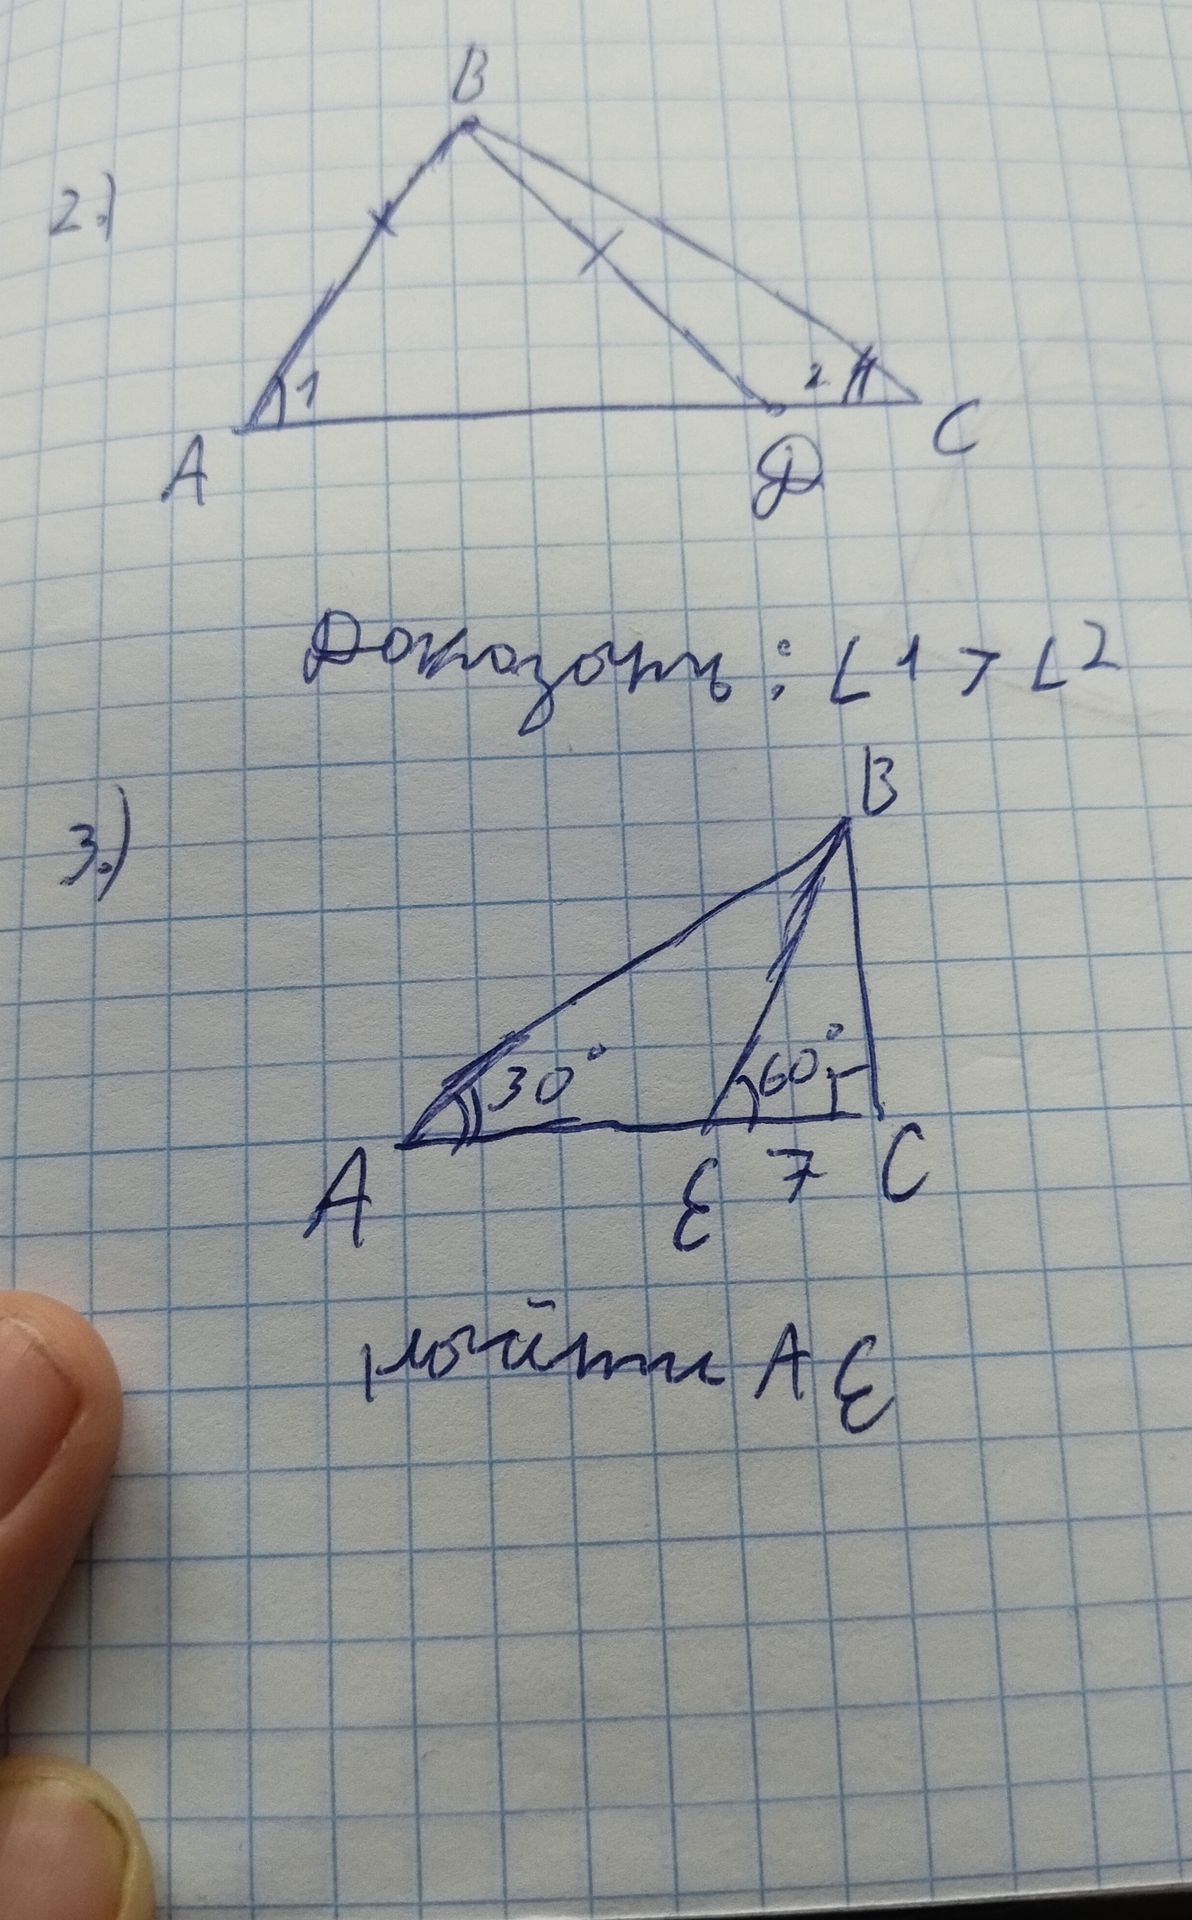 B
2.)
1
2
A
D
C
Доказать: ∠1 > ∠2
B
3.)
30°
60°
A
E
7
C
найти AE